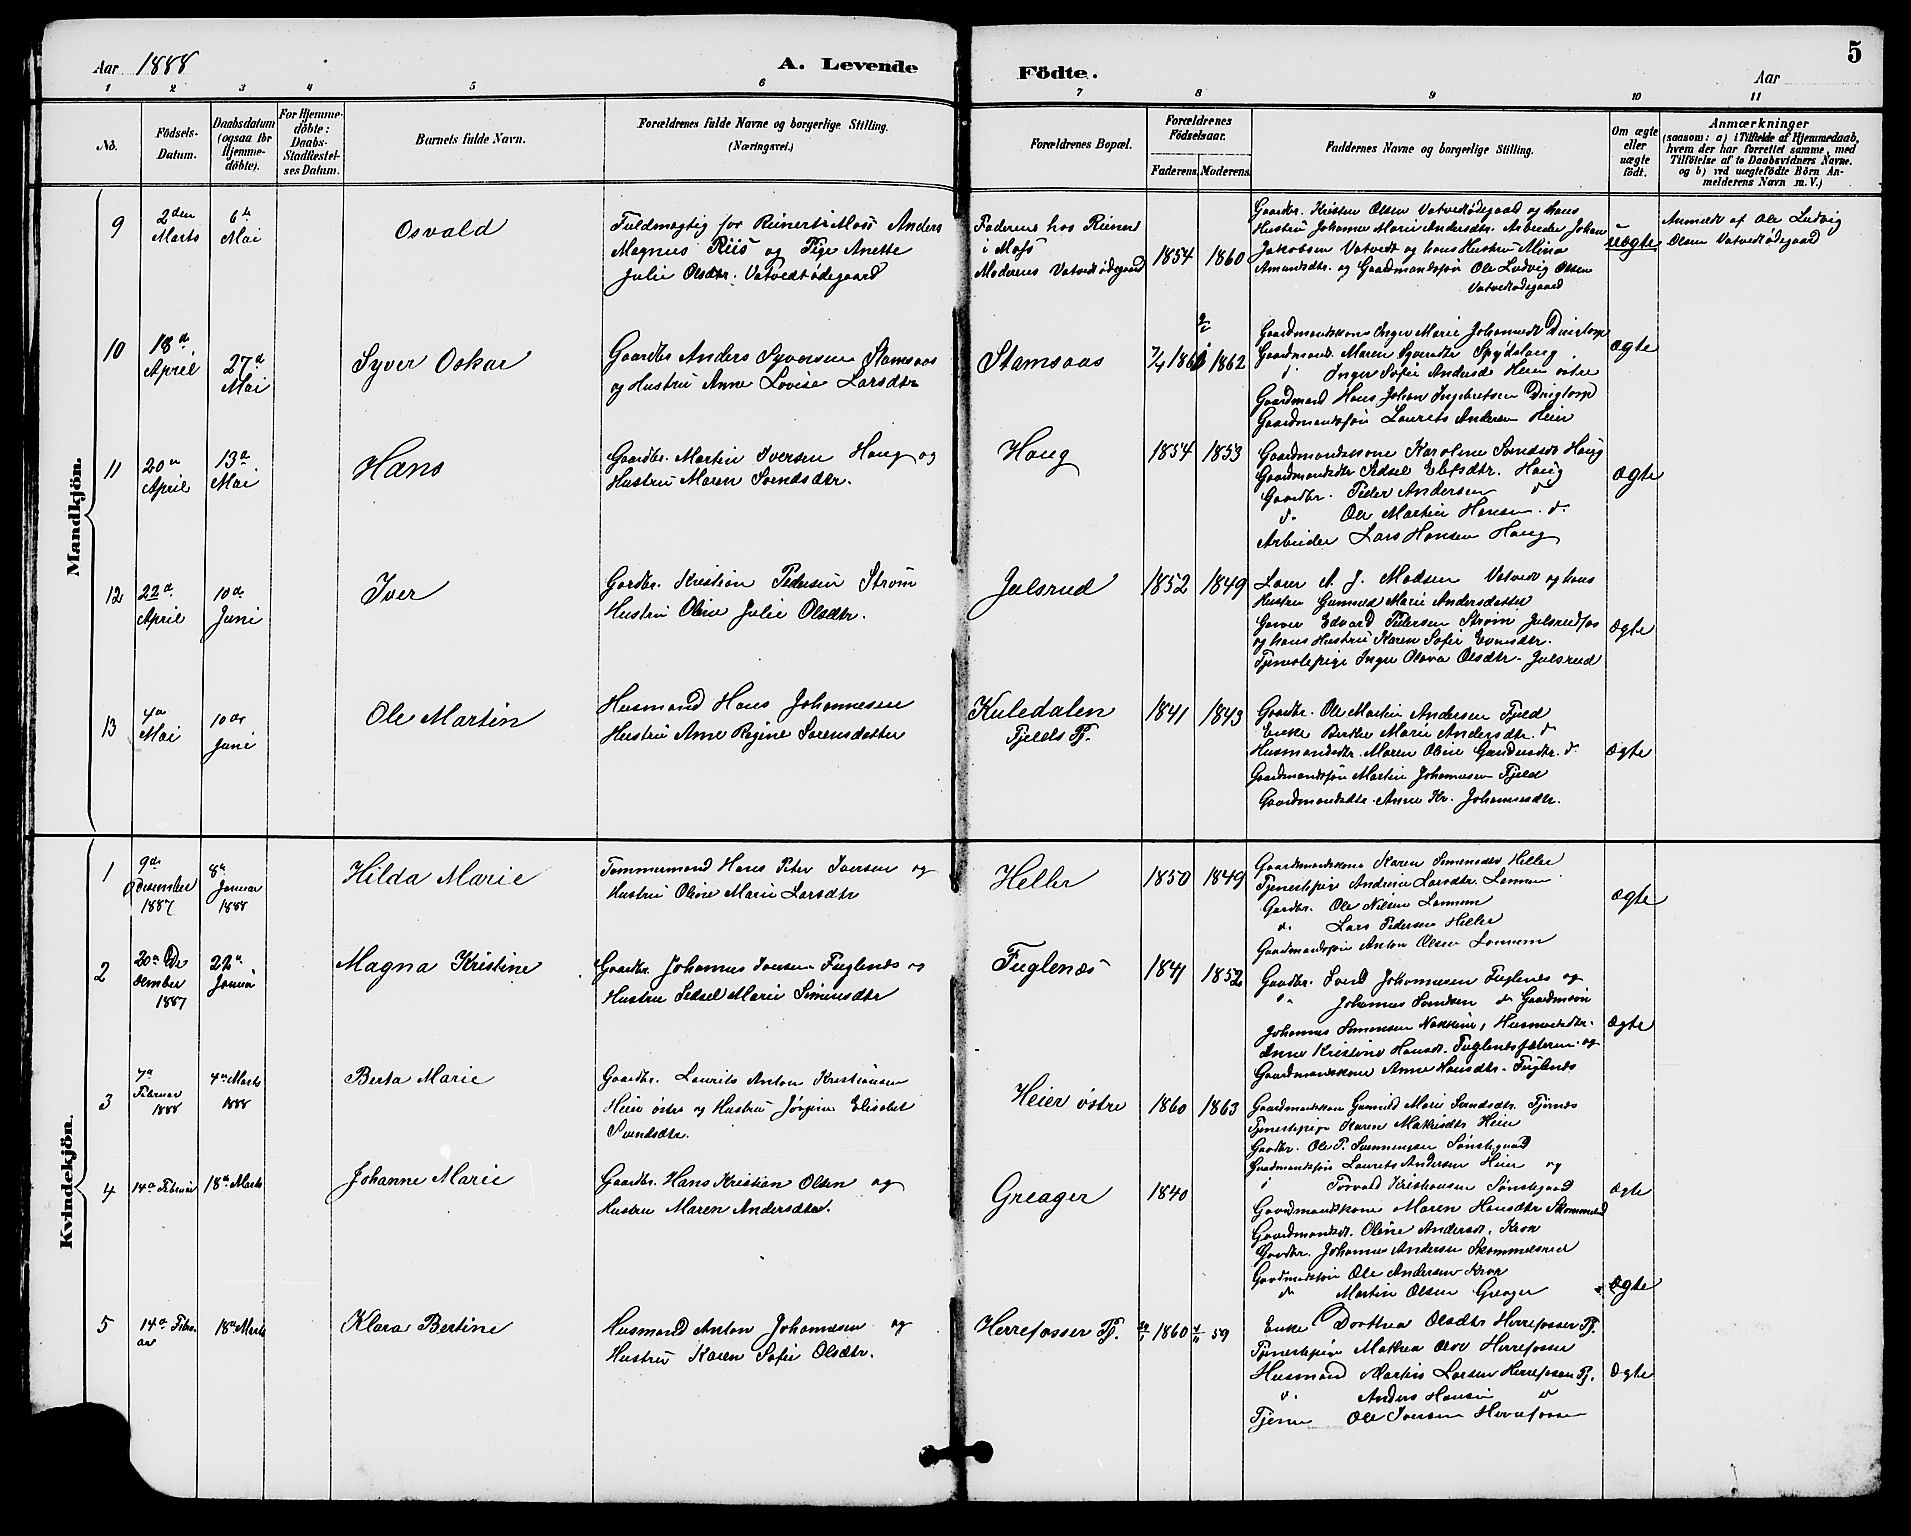 Aar 1888
A. Levende Födte.
Aar
5
1 2 3 4 5 6 7 8 9 10 11
No.
Födsels-Datum.
Daabsdatum (ogsaa for Hjemmedöbte).
For Hjemmedöbte: Daabs-Stadfæstelses Datum.
Barnets fulde Navn.
Forældrenes fulde Navne og borgerlige Stilling.
(Næringsvei.)
Forældrenes Bopæl.
Forældrenes Födselsaar.
Faderens. Moderens.
Faddernes Navne og borgerlige Stilling.
Om ægte eller uægte födt.
Anmærkninger
(saasom: a) i Tilfælde af Hjemmedaab,
hvem der har forrettet samme, med
Tilföielse af to Daabsvidners Navne.
og b) ved uægtefödte Börn Anmelderens Navn m. V.)
Mandkjön.
9
2den Marts
6te Mai
Osvald
Fuldmægtig for Reinert i Moss Anders
Magnus Riis og Pige Anette
Julie Olsdtr. Vatvedtødegaard
Faderens hos Reinert
i Moss
Moderens Vatvedtødegaard
1854 1860
Gaardbr. Kristen Olsen Vatvedtødegaard og hans
Hustru Johanne Marie Andersdtr. Arbeider Johan
Jakobsen Vatvedt og hans Hustru Mina
Amundsdtr. og Gaardmandssøn Ole Ludvig Olsen
Vatvedtødegaard
uægte
Anmeldt af Ole Ludvig
Olsen Vatvedtødegaard
10
18d April
27d Mai
Syver Oskar
Gaardbr Anders Syversen Stamsaas
og Hustru Anne Lovise Larsdtr
Stamsaas
1862
Gaardmandskone Inger Marie Johannesdt
Gaardmandsd. Maren Syversdtr Spydslaug
d. Inger Sofie Andersd Heier østre
Gaardmand Hans Johan Ingebretsen
Gaardmandssøn Laurits Andersen Heier
ægte
11
20de April
13d Mai
Hans
Gaardbr. Martin Iversen Haug og
Hustru Maren Svendsdtr.
Haug
1854 1853
Gaardmandskone Karoline Svendsdt Haug
Gaardmandsdtr Sedsel Haug
Gaardbr. Peder Andersen d
d. Ole Martin Hansen d.
Arbeider Lars Hansen Haug
ægte
12
22d April
10de Juni
Iver
Gardbr. Kristian Pedersen Strøm
Hustru Oline Julie Olsdtr.
Julsrud
1852 1849
Lærer A. J. Madsen Vatvedt og hans
Hustru Gunnild Marie Andersdatter
Garver Edvard Pedersen Strøm
og hans Hustru Karen Sofie Evensdtr.
Tjenestepige Inger Olava Olsdtr. Julsrud
ægte
13
4de Mai
10de Juni
Ole Martin
Husmand Hans Johannesen
Hustru Anne Regine Sørensdatter
Kuledalen
Fjelds Pl.
1841 1843
Gaardbr. Ole Martin Andersen Fjeld
Enke Berthe Marie Andersdtr. d
Husmandsdtr. Maren Oline d
Gaardmandssøn Martin Johannesen Fjeld
Gaardmandsdtr. Anne Kr. Johannesdtr.
ægte
Kvindekjön.
1
9de Desember 1887
8de Januar 1888
Hilda Marie
Tømmermand Hans Peter Iversen og
Hustru Oline Marie Larsdtr
Heller
1850 1849
Gaardmandskone Karen Simensdtr Heller
Tjenestepige Andrine Larsdtr. Lønnem
Gardbr. Ole Nilsen Lønnem
d. Lars Pedersen Heller
Gaardmandssøn Anton Olsen Lønnem
ægte
2
20de Desember 1887
22de Januar
Magna Kristine
Gaardbr. Johannes Iversen Fuglenæs og
Hustru Sedsel Marie Simensdtr
Fuglenæs
1841 1852
Gaardbr. Svend Johannesen Fuglenæs og
d. Johannes Svendsen d Gaardmssøn
Johannes Simensen Husmandsdtr.
Anne Kristine Hansdt. og
Gaardmandskone Anne Hansdtr. Fuglenæs
ægte
3
7de Februar 1888
4de Marts 1888
Berta Marie
Gaardbr. Laurits Anton Kristiansen
Heier østre og Hustru Jørgine Elisabet
Svendsdtr.
Heier østre
1860 1863
Gaardmandskone Gunnild Marie Svendsdtr.
Tjenestepige Karen Heier
Gardbr. Ole P. Svenningsen Sønstegaard
Gaardmandssøn Laurits Andersen Heier og
Torvald Kristiansen Sønstegaard
ægte
4
14de Februar
18de Marts
Johanne Marie
Gaardbr. Hans Kristian Olsen og
Hustru Maren Andersdtr.
Greager
1840
Gaardmandskone Maren Hansdtr
Gaardmandsdt. Oline Andersdt. Kroer
Gardbr. Johannes Andersen
Gaardmandssøn Ole Andersen Kroer
d. Martin Olsen Greager
ægte
5
14de Februar
18de Marts
Klara Bertine
Husmand Anton Johannesen og
Hustru Karen Sofie Olsdtr.
Herrefosser Pl.
1860 59
Enke Dorthea Olsdtr Herrefosser Pl.
Tjenestepige Mathea Herrefosser
Husmand Martin Larsen Herrefosser Pl.
d. Anders Hansen d
Tjener Ole Iversen Herrefosser
ægte